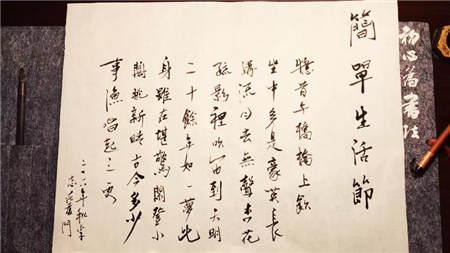 簡單生活節
憶昔午橋橋上飲
坐中多是豪英長
溝流月去無聲杏花
疏影裡吹笛到天明
二十餘年如一夢此
身雖在堪驚閒登小
閣眺新晴古今多少
事漁唱起三更
年秋
初心